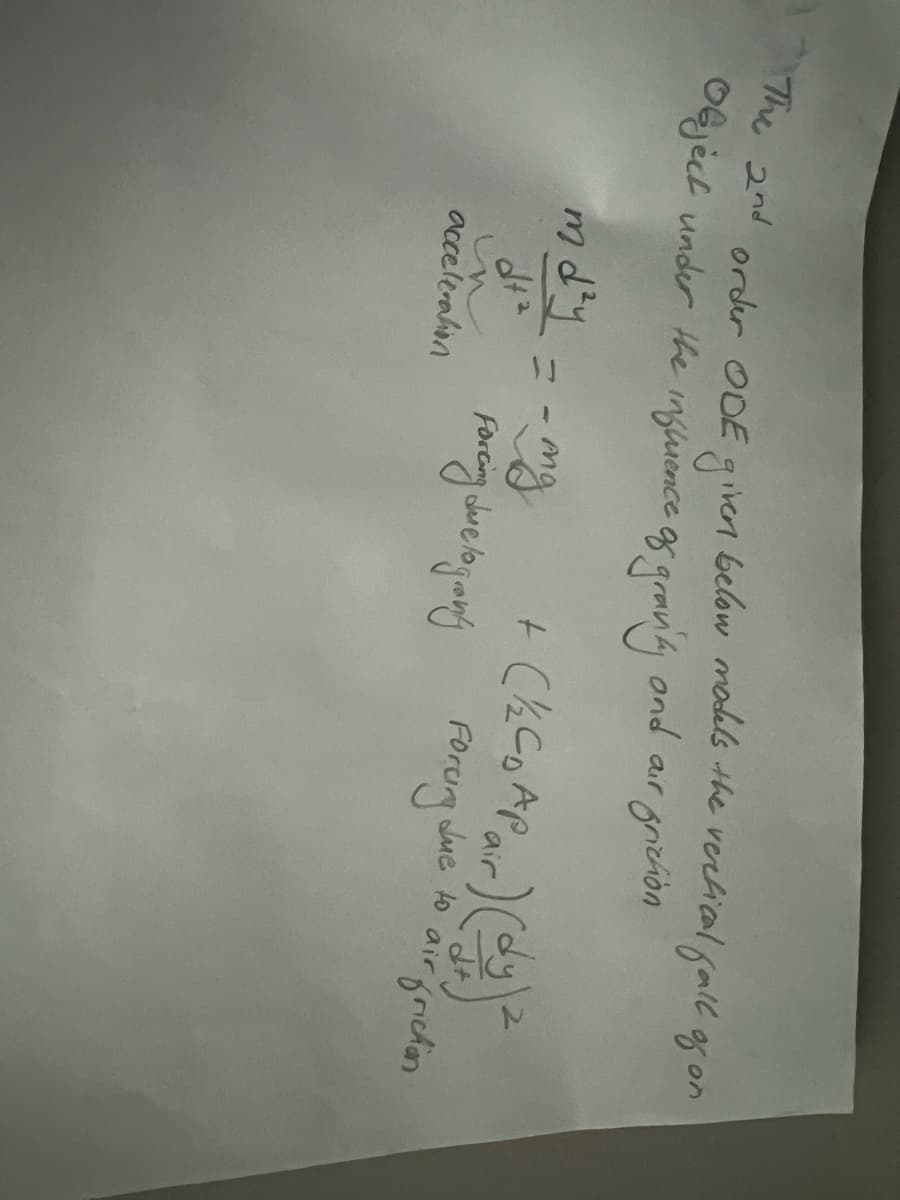 The 2nd order ODE given below models the vertical fall of an
Object under the influence of gravity and air friction
m d²y/dt² = - mg + (½ C_D A ρ_air) (dy/dt)²
acceleration Forcing due to gravity Forcing due to air friction